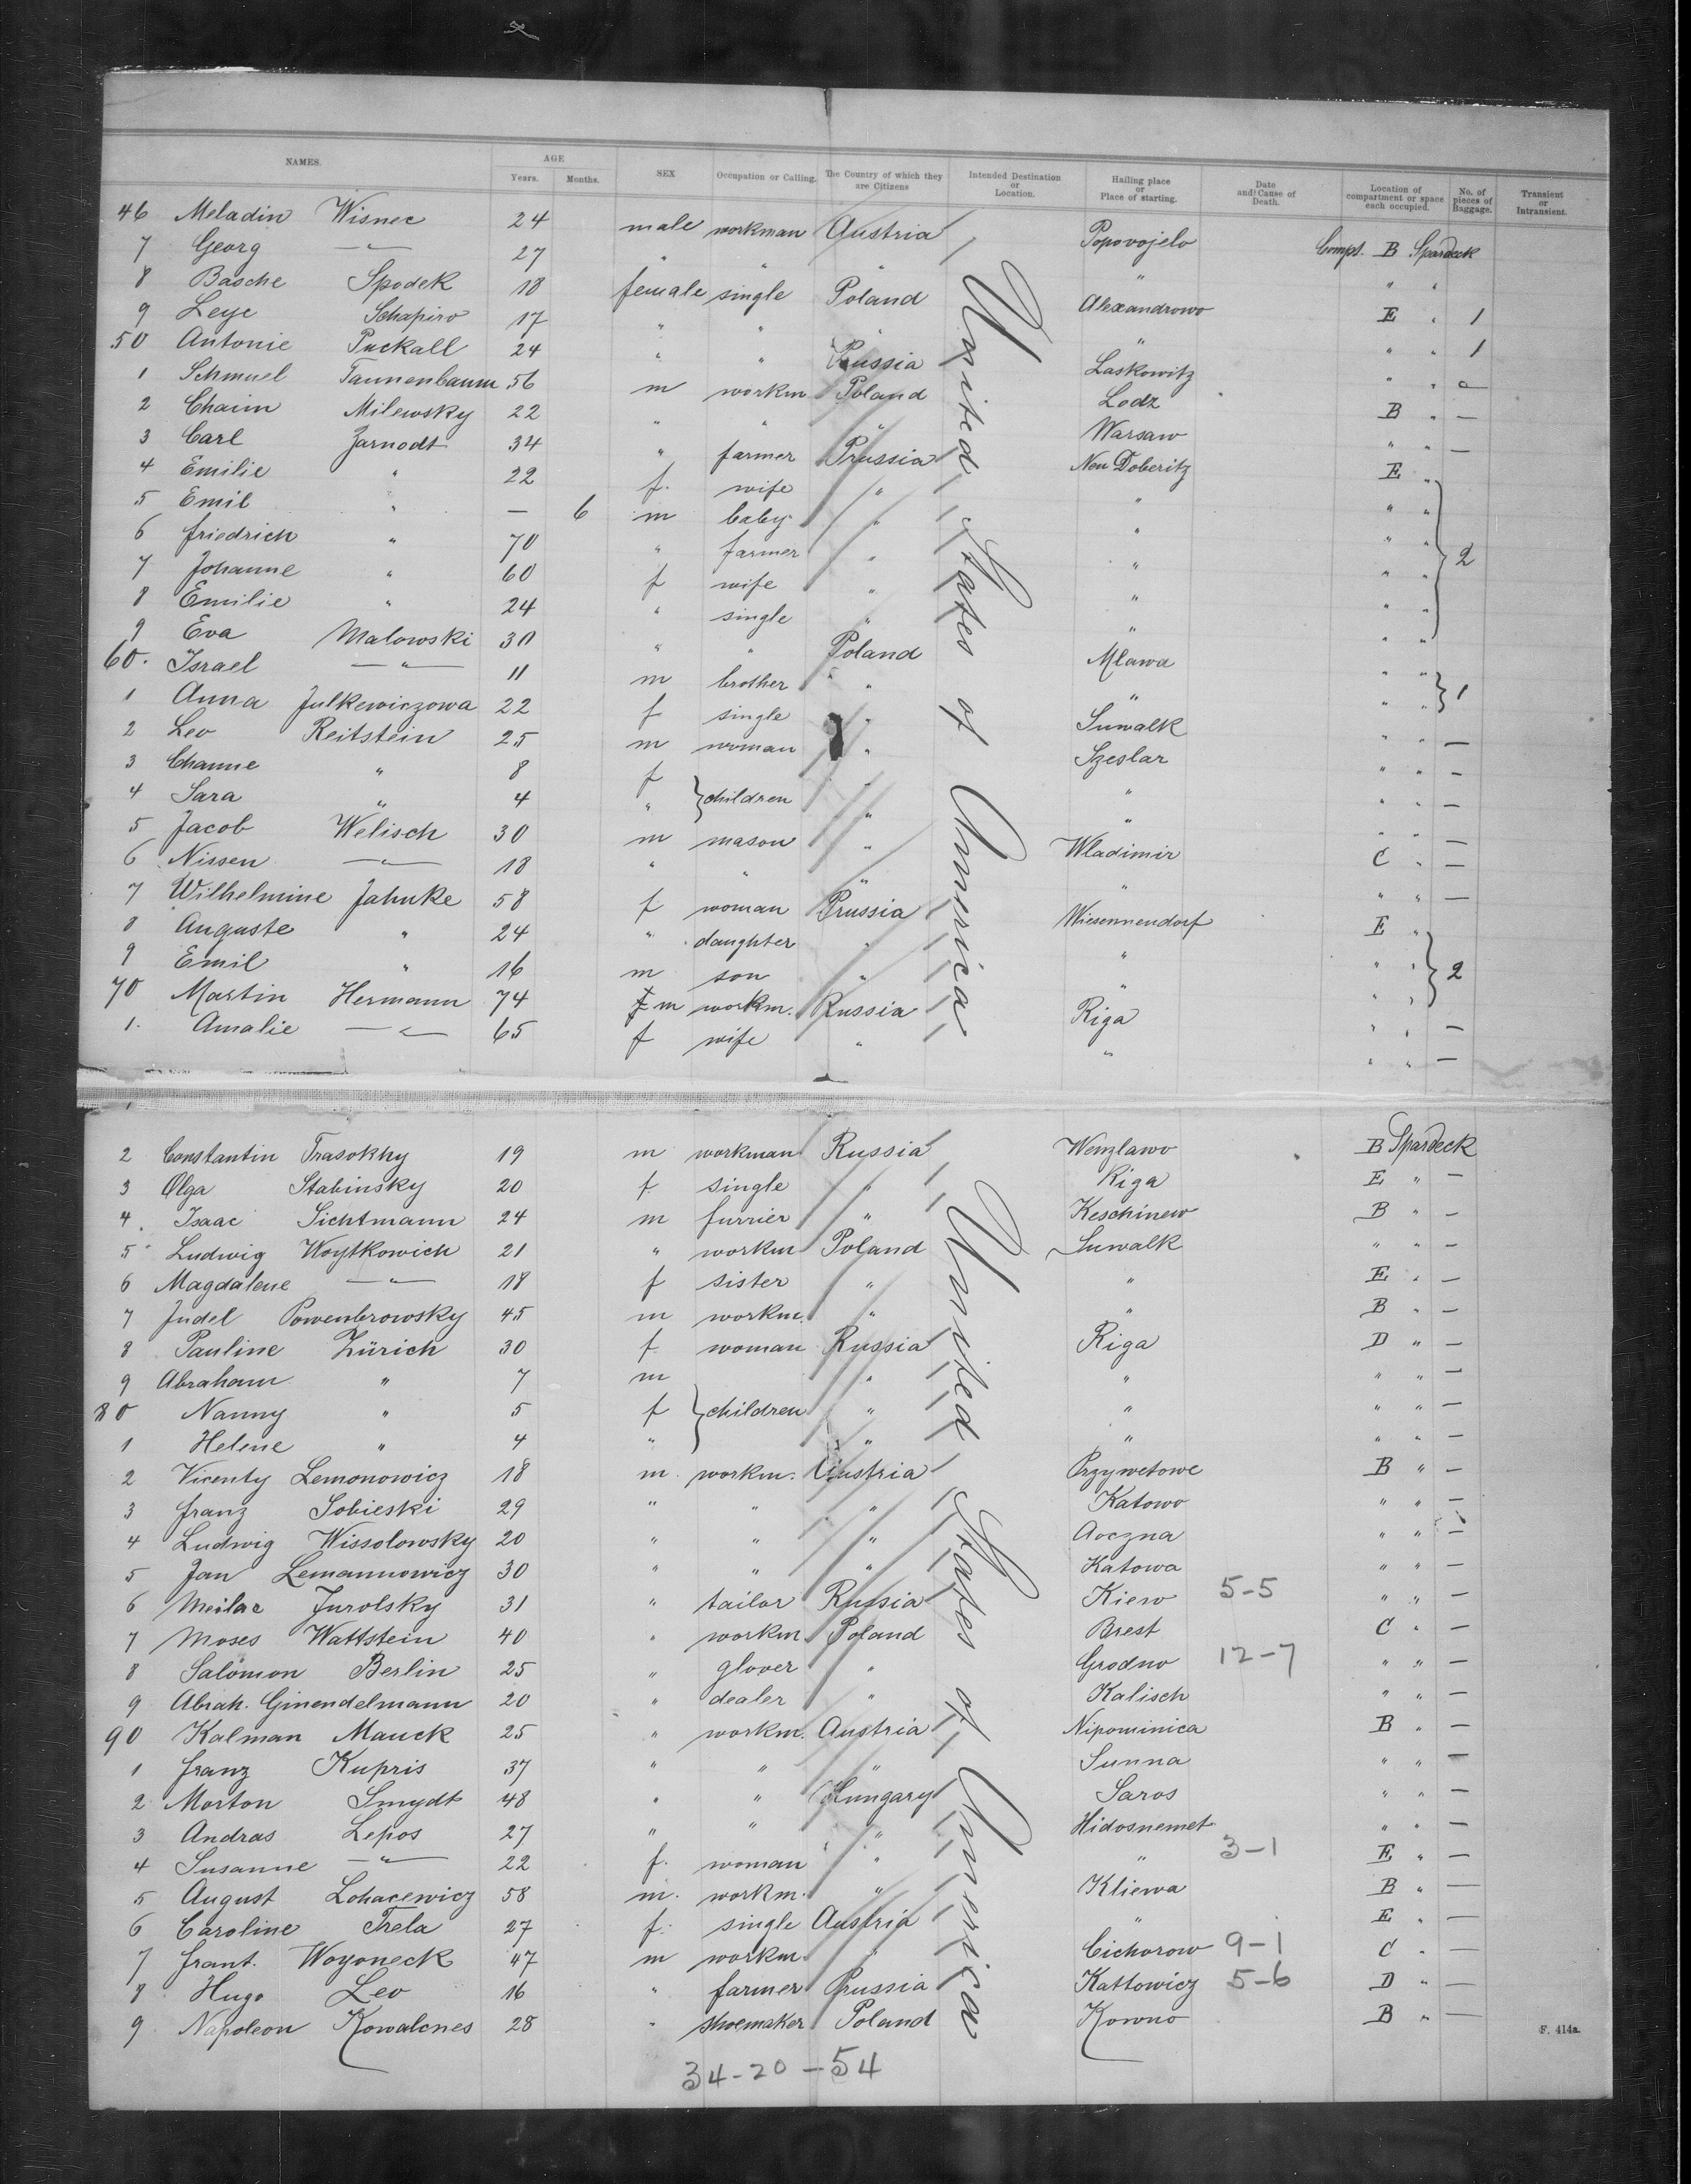 NAMES. AGE Years. Months. SEX Occupation or Calling. The Country of which they are Citizens Intended Destination or Location. Hailing place or Place of starting. Date and Cause of Death. Location of compartment or space each occupied. No. of pieces of Baggage. Transient or Intransient.
46 Meladin Wisnec 24 male workman Austria Popovojelo Compt. B Spardeck
7 Georg —"— 27 " " " " " "
8 Basche Spodek 18 female single Poland Alexandrowo E " 1
9 Leye Schapiro 17 " " " " " " 1
50 Antonie Puckall 24 " " Prussia Laskowitz " " —
1 Schmuel Tannenbaum 56 m workm Poland Lodz B " —
2 Chaim Milewsky 22 " " " Warsaw " " —
3 Carl Zarnodt 34 " farmer Prussia Neu Doberitz E "
4 Emilie " 22 f. wife " " " "
5 Emil " — 6 m baby " " " "
6 Friedrich " 70 " farmer " " " " 2
7 Johanne " 60 f wife " " " "
8 Emilie " 24 " single " " " "
9 Eva Malowski 30 " " Poland Mlawa " "
60. Israel —"— 11 m brother " " " " 1
1 Anna Julkewiczowa 22 f single " Suwalk " " —
2 Leo Reitstein 25 m woman " Szeslar " " —
3 Channe " 8 f children " " " " —
4 Sara " 4 " " " " " —
5 Jacob Welisch 30 m mason " Wladimir C " —
6 Nissen —"— 18 " " " " " " —
7 Wilhelmine Jahnke 58 f woman Prussia Wiesennendorf E "
8 Auguste " 24 " daughter " " " " 2
9 Emil " 16 m son " " " "
70 Martin Hermann 74 m workm. Russia Riga " " —
1. Amalie —"— 65 f wife " " " " —
2 Constantin Trasokhy 19 m workman Russia Wenzlawo B Spardeck
3 Olga Stabinsky 20 f single " Riga E " —
4. Isaac Lichtmann 24 m furrier " Keschinew B " —
5 Ludwig Woytkowich 21 " workm Poland Suwalk " " —
6 Magdalene —"— 18 f sister " " E " —
7 Judel Powenbrowsky 45 m workm. " " B " —
8 Pauline Zürich 30 f woman Russia Riga D " —
9 Abraham " 7 m " " " " —
80 Nanny " 5 f children " " " " —
1 Helene " 4 " " " " " —
2 Vicenty Lemonowicz 18 m. workm. Austria Przywetowe B " —
3 Franz Sobieski 29 " " " Katowo " " —
4 Ludwig Wissolowsky 20 " " " Aoczna " " —
5 Jan Lemannowicz 30 " " " Katowa " " —
6 Meilac Jurolsky 31 " tailor Russia Kiew 5-5 " " —
7 Moses Wattstein 40 " workm Poland Brest C " —
8 Salomon Berlin 25 " glover " Grodno 12-7 " " —
9 Abrah. Ginendelmann 20 " dealer " Kalisch " " —
90 Kalman Mauck 25 " workm. Austria Nipominica B " —
1 Franz Kupris 37 " " " Sunna " " —
2 Morton Smydt 48 " " Hungary Saros " " —
3 Andras Lepos 27 " " " Hidosnemet " " —
4 Susanne —"— 22 f. woman " " 3-1 E " —
5 August Lohacewicz 58 m. workm. " Kliewa B " —
6 Caroline Trela 27 f. single Austria " E " —
7 Frant. Woyoneck 47 m workm. " Cichorow 9-1 C " —
8 Hugo Leo 16 " farmer Prussia Kattowicz 5-6 D " —
9 Napoleon Kowalcnes 28 " shoemaker Poland Kowno B " —
United States of America
United States of America
34-20-54
F. 414a.